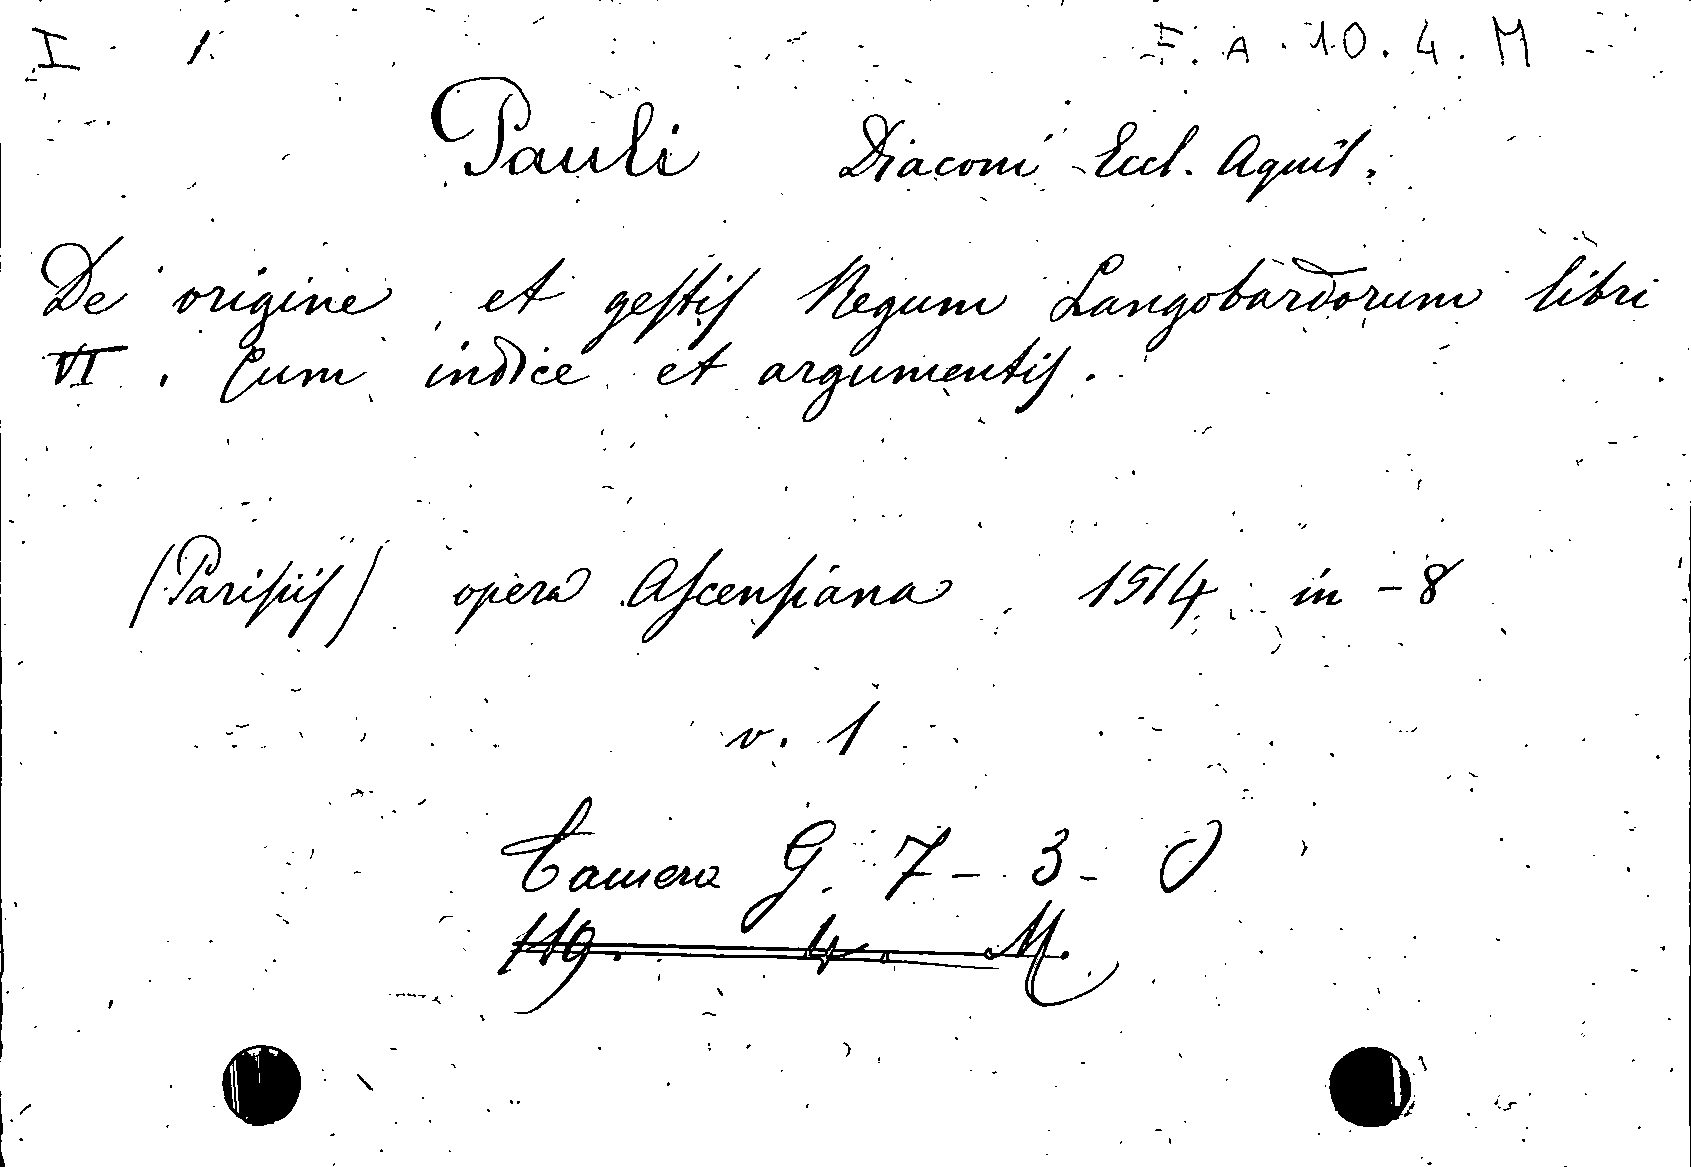 I 1. F. A. 10. 4. M
Pauli Diaconi Eccl. Aquil.
De origine et gestis Regum Langobardorum libri
VI. Cum indice et argumentis.
(Parisiis) opera Ascensiana 1514 in - 8
v. 1
Camera G. 7 - 3 - O
119. 4. M.